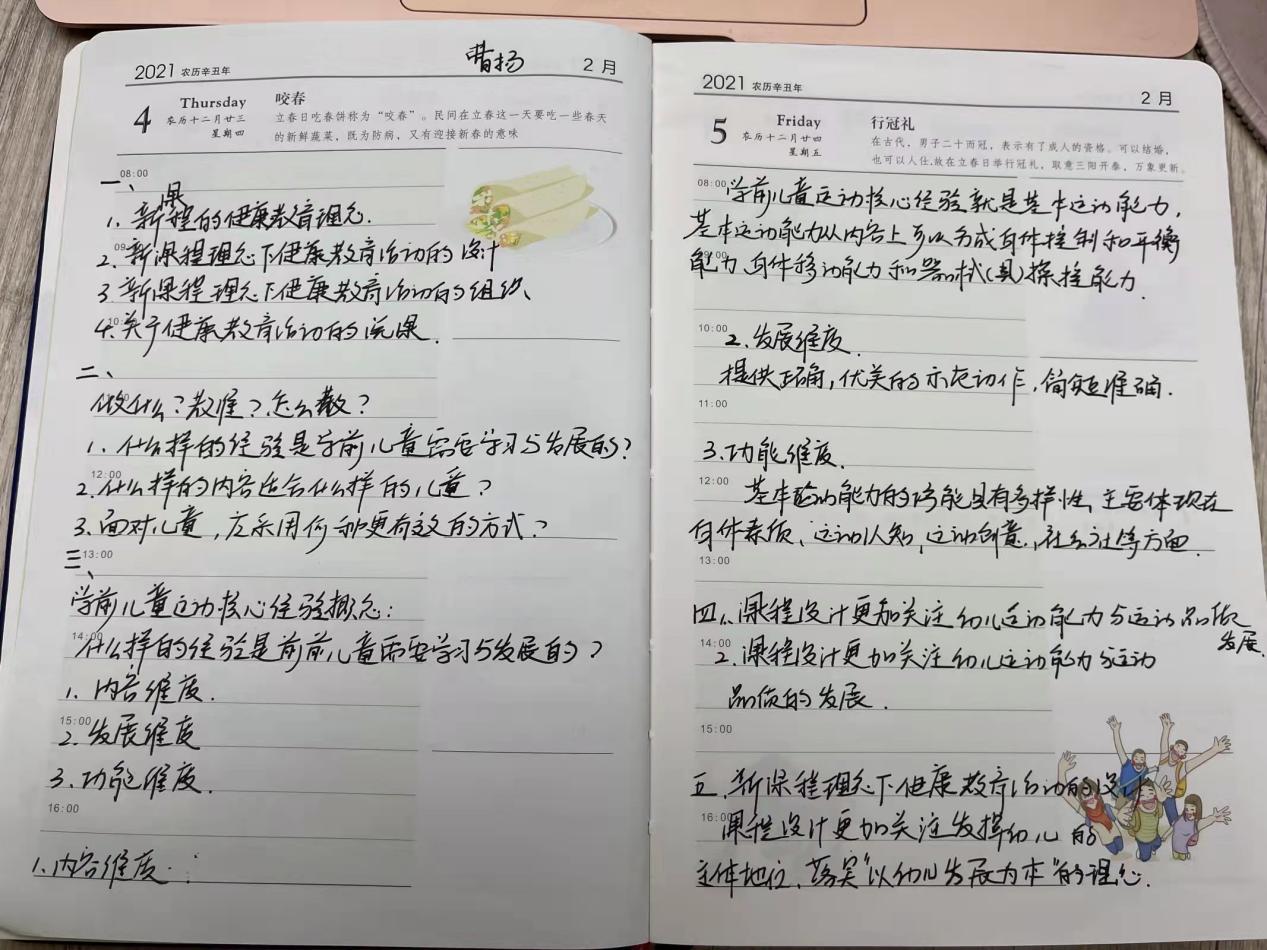 2021 农历辛丑年
曹扬
2 月
4
Thursday
农历十二月廿三
星期四
咬春
立春日吃春饼称为“咬春”。民间在立春这一天要吃一些春天
的新鲜蔬菜，既为防病，又有迎接新春的意味
08:00
一、
1. 新课程的健康教育理念.
09:00
2. 新课程理念下健康教育活动的设计
3. 新课程理念下健康教育活动的组织、
10:00
4. 关于健康教育活动的说课.
二、
做什么？教谁？怎么教？
1. 什么样的经验是学前儿童需要学习与发展的？
12:00
2. 什么样的内容适合什么样的儿童？
3. 面对儿童，应采用何种更有效的方式？
13:00
三、
学前儿童运动核心经验概念：
14:00
什么样的经验是前前儿童需要学习与发展的？
1. 内容维度.
15:00
2. 发展维度
3. 功能维度.
16:00
1. 内容维度：
2021 农历辛丑年
2 月
5
Friday
农历十二月廿四
星期五
行冠礼
在古代，男子二十而冠，表示有了成人的资格。可以结婚，
也可以入仕,故在立春日举行冠礼，取意三阳开泰，万象更新。
08:00
学前儿童运动核心经验就是基本运动能力，
基本运动能力从内容上可以分成身体控制和平衡
09:00
能力、身体移动能力和器械(具)操控能力.
10:00
2. 发展维度.
提供正确，优美的示范动作，简短准确.
11:00
3. 功能维度.
12:00
基本运动能力的功能具有多样性，主要体现在
身体素质、运动认知、运动创意、社会性等方面.
13:00
四、课程设计更加关注幼儿运动能力与运动品质
发展.
14:00
2. 课程设计更加关注幼儿运动能力与运动
品质的发展.
15:00
五、新课程理念下健康教育活动的设计
16:00
课程设计更加关注发挥幼儿的
主体地位、落实“以幼儿发展为本”的理念.